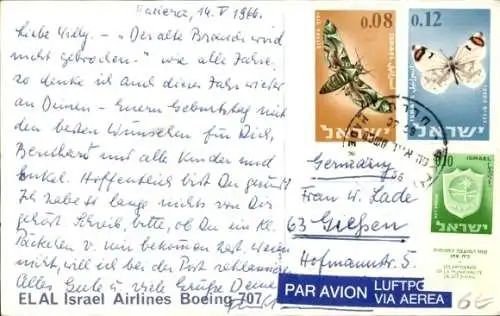 Naharia, 14. V 1966.
Liebe Willy. – "Der alte Brauch wird
nicht gebrochen" wie alle Jahre.
so denke ich auch dieses Jahr wieder
an Deinen – Euern Geburtstag mit
den besten Wünschen für Dich,
Bernhard und alle Kinder und
Enkel. Hoffentlich bist Du gesund.
Ich habe lange nichts von Dir
gehört. Schreib, bitte, ob Du ein Kl.
Päckchen v. mir bekommen hast. Wenn
nicht, will ich bei der Post reklamieren
Alles Gute u. viele Grüße Deine
EL AL Israel Airlines Boeing 707
0.08
ISRAEL
ישראל
0.12
ISRAEL
ישראל
0.10
ISRAEL
ישראל
Germany
Frau W. Lade
63 Gießen
Hofmannstr. 5.
PAR AVION
LUFTPO
VIA AEREA
6€